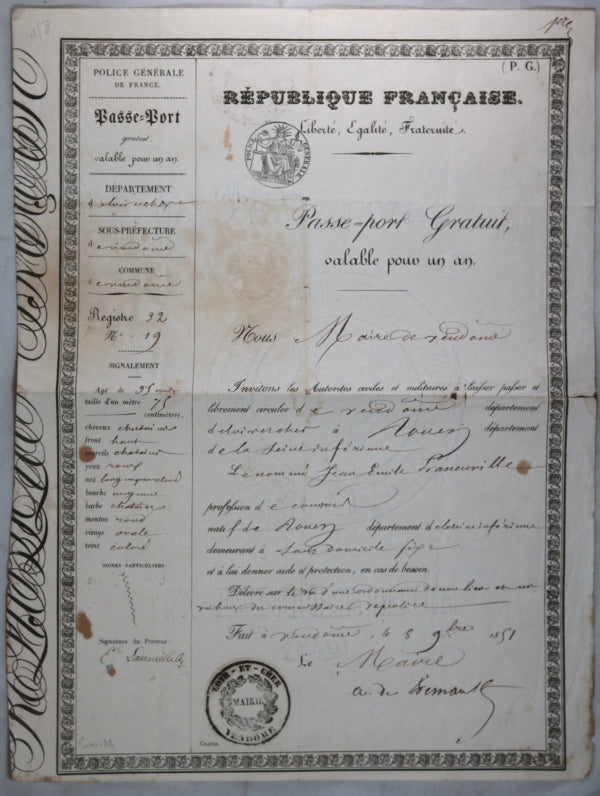 POLICE GÉNÉRALE
DE FRANCE.
Passe-Port
gratuit,
valable pour un an.
DÉPARTEMENT
SOUS-PRÉFECTURE
d vendôme
COMMUNE
d vendôme
Registre 32
N° 19
SIGNALEMENT
Agé de 35 ans
taille d'un mètre 75
centimètres,
cheveux chatains
front haut
sourcils chatains
yeux roux
nez long
bouche moyenne
barbe chatain
menton rond
visage ovale
teint coloré
SIGNES PARTICULIERS
Signature du Porteur:
(P. G.)
RÉPUBLIQUE FRANÇAISE.
Liberté, Égalité, Fraternité.
POLICE GÉNÉRALE
Passe-port Gratuit,
valable pour un an.
Nous Maire de vendôme
Invitons les Autorités civiles et militaires à laisser passer et
librement circuler de vendôme département
de loir et cher à Rouen département
de la Seine inférieure
Le nommé Jean Emile
profession de
natif de Rouen département de la seine inférieure
demeurant à sans domicile fixe
et à lui donner aide et protection, en cas de besoin.
Délivré sur le vu d'une
Fait à vendôme, le 8 9bre 1851
Le Maire
LOIR-ET-CHER
MAIRIE
VENDÔME
GRATIS.